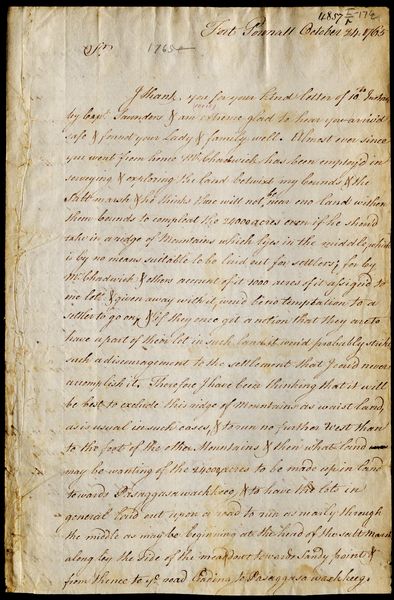 4857 E 174
Fort Pownall October 24. 1765
Sr.
1765
I thank you for your kind letter of 10th Instant
by Capt. Saunders & am very extreme glad to hear you arrivd
safe & found your Lady & family well. Almost ever since
you went from home Mr. Chadwick has been employ'd in
surveying & exploring the land betwixt my bounds & the
Salt marsh & he thinks there will not be near eno. land within
them bounds to compleat the 24000 acres even if he should
take in a ridge of Mountains which lyes in the middle, which
is by no means suitable to be laid out for settlers; for by
Mr. Chadwick & others account if 1000 acres of it assign'd to
one lott & given away with it, woud be no temptation to a
settler to go on, & if they once get a notion that they are to
have a part of their lot in such land it woud probably strike
such a discouragement to the settlement that I coud never
accomplish it. Therefore I have been thinking that it will
be best to exclude this ridge of Mountains as waist land,
as is usual in such cases, & to run no farther West than
to the foot of the other Mountains & then what land
may be wanting of the 24000 acres to be made up in land
towards Pasaggasawackkeeg, & to have the lots in
general laid out upon a road to run as nearly through
the middle as may be beginning at the head of the salt Marsh
along by the side of the meadow towards Sandy point &
from thence to ye road leading to Pasaggasawackkeeg.